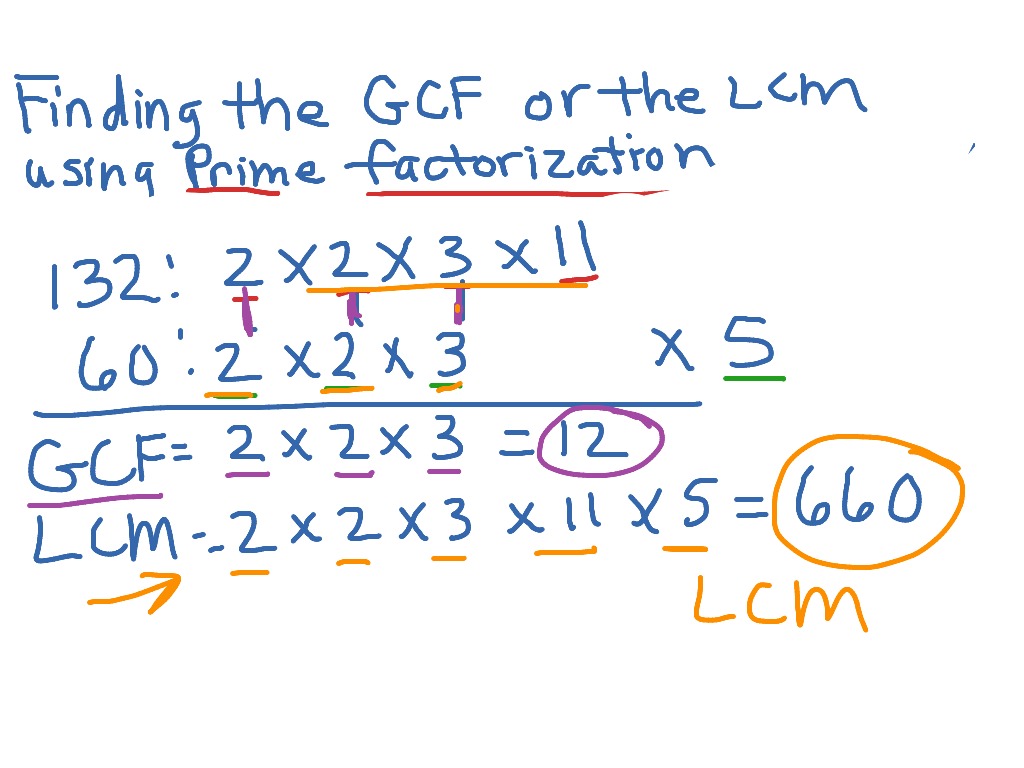 Finding the GCF or the LCM
using Prime factorization
132: 2 x 2 x 3 x 11
60: 2 x 2 x 3 x 5
GCF = 2 x 2 x 3 = 12
LCM = 2 x 2 x 3 x 11 x 5 = 660
LCM